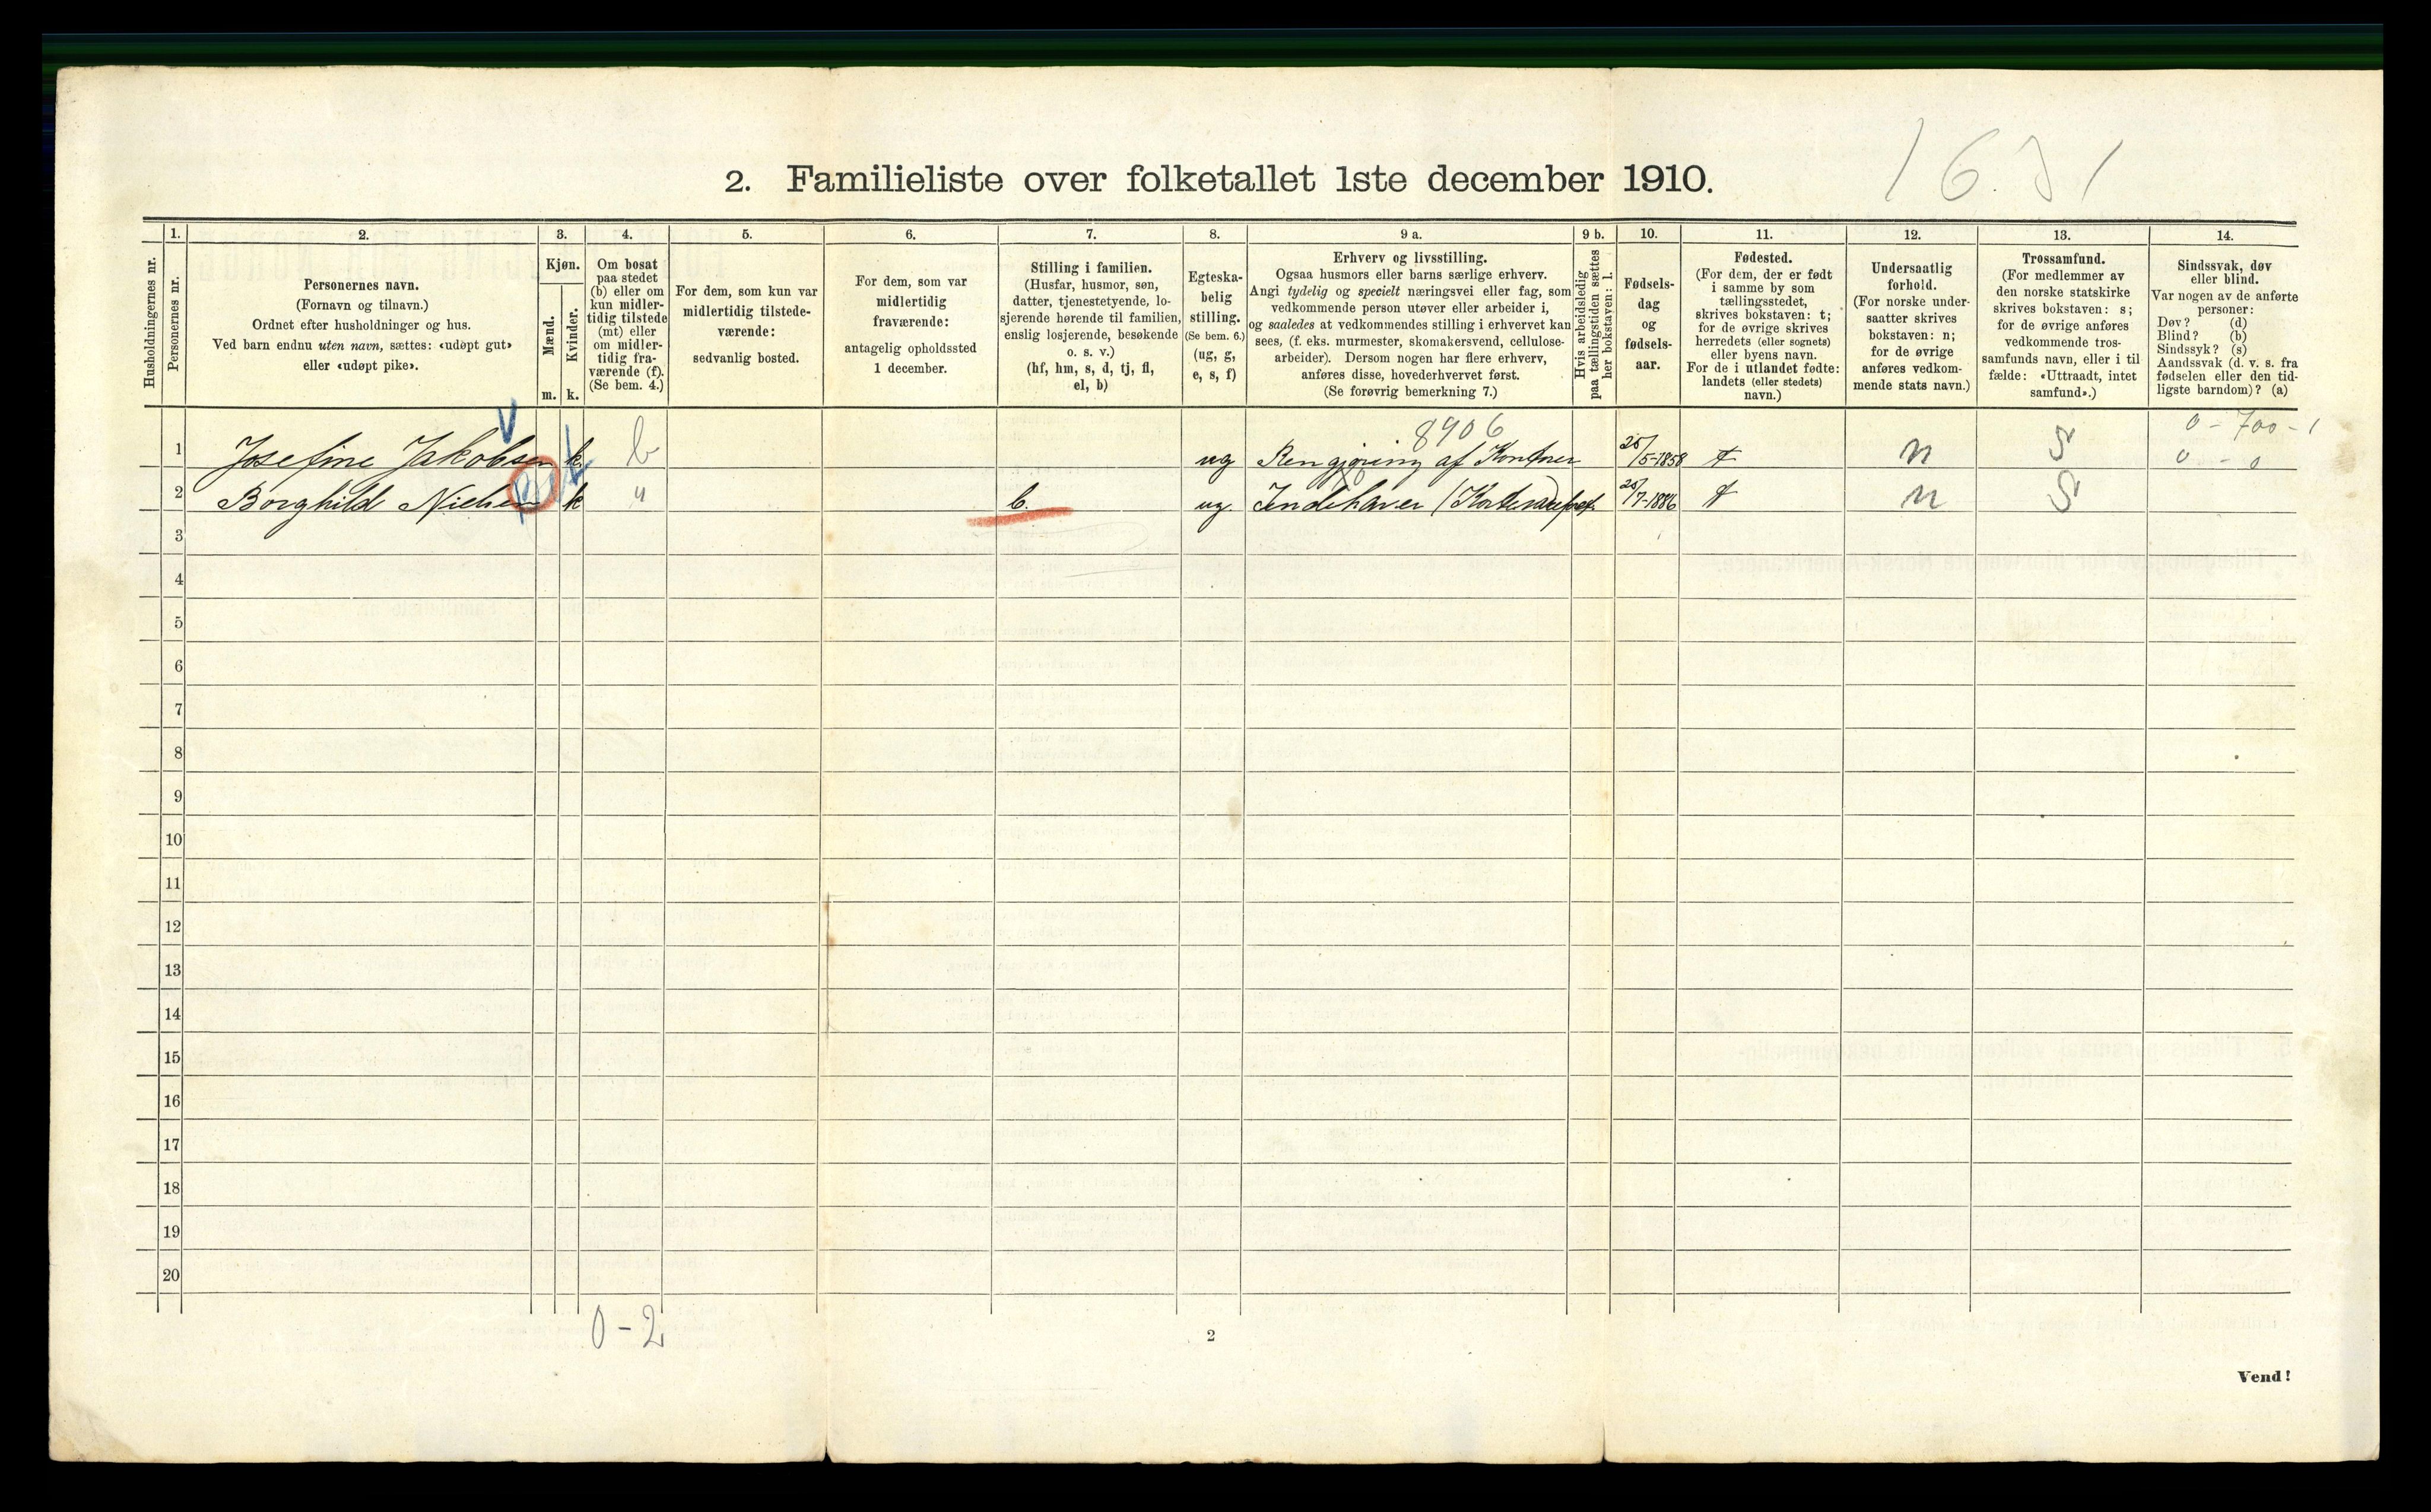 16.31
2. Familieliste over folketallet 1ste december 1910.
1. 2. 3. 4. 5. 6. 7. 8. 9 a. 9 b. 10. 11. 12. 13. 14.
Husholdningernes nr.
Personernes nr.
Personernes navn.
(Fornavn og tilnavn.)
Ordnet efter husholdninger og hus.
Ved barn endnu uten navn, sættes: «udøpt gut»
eller «udøpt pike».
Kjøn.
Mænd.
Kvinder.
m. k.
Om bosat
paa stedet
(b) eller om
kun midler-
tidig tilstede
(mt) eller
om midler-
tidig fra-
værende (f).
(Se bem. 4.)
For dem, som kun var
midlertidig tilstede-
værende:
sedvanlig bosted.
For dem, som var
midlertidig
fraværende:
antagelig opholdssted
1 december.
Stilling i familien.
(Husfar, husmor, søn,
datter, tjenestetyende, lo-
sjerende hørende til familien,
enslig losjerende, besøkende
o. s. v.)
(hf, hm, s, d, tj, fl,
el, b)
Egteska-
belig
stilling.
(Se bem. 6.)
(ug, g,
e, s, f)
Erhverv og livsstilling.
Ogsaa husmors eller barns særlige erhverv.
Angi tydelig og specielt næringsvei eller fag, som
vedkommende person utøver eller arbeider i,
og saaledes at vedkommendes stilling i erhvervet kan
sees, (f. eks. murmester, skomakersvend, cellulose-
arbeider). Dersom nogen har flere erhverv,
anføres disse, hovederhvervet først.
(Se forøvrig bemerkning 7.)
Hvis arbeidsledig
paa tællingstiden sættes
her bokstaven: l.
Fødsels-
dag
og
fødsels-
aar.
Fødested.
(For dem, der er født
i samme by som
tællingsstedet,
skrives bokstaven: t;
for de øvrige skrives
herredets (eller sognets)
eller byens navn.
For de i utlandet fødte:
landets (eller stedets)
navn.)
Undersaatlig
forhold.
(For norske under-
saatter skrives
bokstaven: n;
for de øvrige
anføres vedkom-
mende stats navn.)
Trossamfund.
(For medlemmer av
den norske statskirke
skrives bokstaven: s;
for de øvrige anføres
vedkommende tros-
samfunds navn, eller i til-
fælde: «Uttraadt, intet
samfund».)
Sindssvak, døv
eller blind.
Var nogen av de anførte
personer:
Døv? (d)
Blind? (b)
Sindssyk? (s)
Aandssvak (d. v. s. fra
fødselen eller den tid-
ligste barndom)? (a)
8906 0 - 700 - 1
1 Josefine Jakobsen k b ug Rengjøring af Kontorer 25/5-1858 t n S 0 - 0
2 Borghild Nielsen k " b. ug. Indehaver 25/7-1886 t n S
3
4
5
6
7
8
9
10
11
12
13
14
15
16
17
18
19
20
0 - 2
2
Vend!